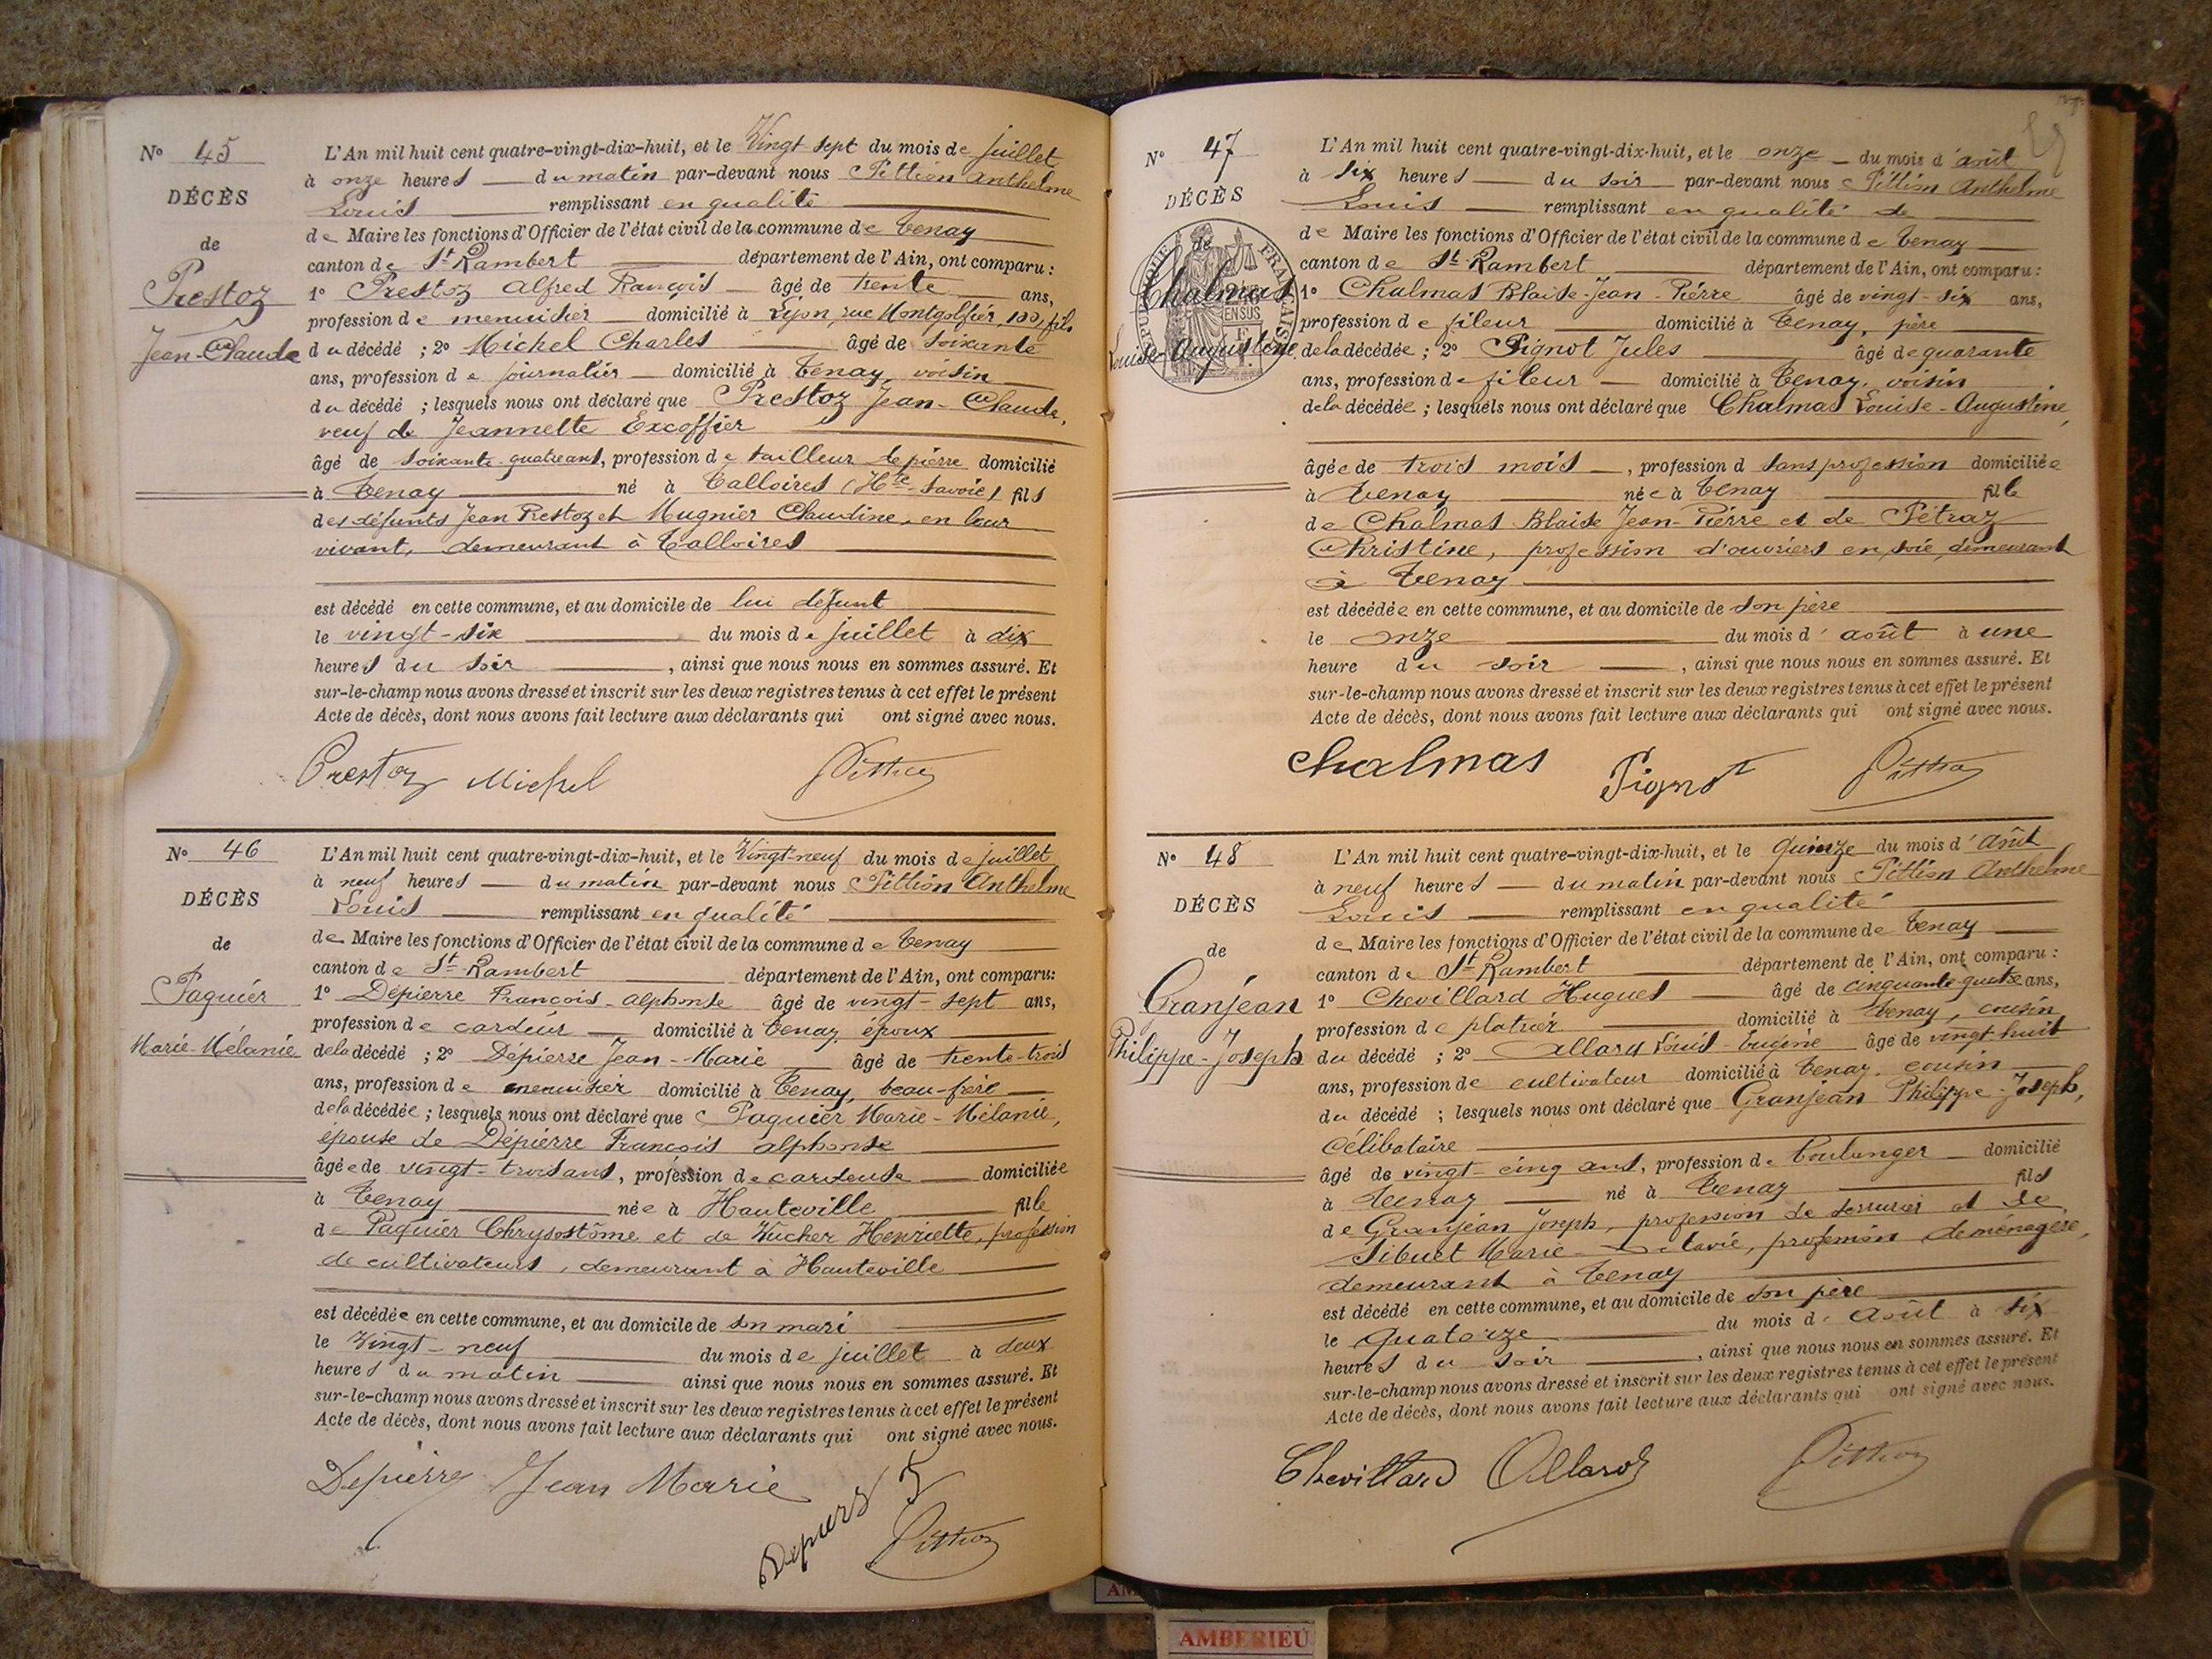 Nº 45
DÉCÈS
de
Prestoz
Jean-Claude
L'An mil huit cent quatre-vingt-dix-huit, et le Vingt sept du mois de juillet
à onze heures du matin par-devant nous Pittion Anthelme
Louis remplissant en qualité
de Maire les fonctions d'Officier de l'état civil de la commune de Tenay
canton de St Rambert département de l'Ain, ont comparu :
1º Prestoz Alfred François âgé de trente ans,
profession de menuisier domicilié à Lyon, rue Montgolfier, 100, fils
du décédé ; 2º Michel Charles âgé de soixante
ans, profession de journalier domicilié à Tenay, voisin
du décédé ; lesquels nous ont déclaré que Prestoz Jean-Claude,
veuf de Jeannette Excoffier
âgé de soixante quatre ans, profession de tailleur de pierre domicilié
à Tenay né à Talloires (Hte Savoie) fils
des défunts Jean Prestoz et Mugnier Claudine, en leur
vivant, demeurant à Talloires
est décédé en cette commune, et au domicile de lui défunt
le vingt-six du mois de juillet à dix
heures du soir, ainsi que nous nous en sommes assuré. Et
sur-le-champ nous avons dressé et inscrit sur les deux registres tenus à cet effet le présent
Acte de décès, dont nous avons fait lecture aux déclarants qui ont signé avec nous.
Prestoz Michel Pittion
Nº 46
DÉCÈS
de
Paquier
Marie-Mélanie
L'An mil huit cent quatre-vingt-dix-huit, et le Vingt-neuf du mois de juillet
à neuf heures du matin par-devant nous Pittion Anthelme
Louis remplissant en qualité
de Maire les fonctions d'Officier de l'état civil de la commune de Tenay
canton de St Rambert département de l'Ain, ont comparu:
1º Dépierre François-alphonse âgé de vingt-sept ans,
profession de cardeur domicilié à Tenay, époux
de la décédé ; 2º Dépierre Jean-Marie âgé de trente-trois
ans, profession de menuisier domicilié à Tenay, beau-frère
de la décédée ; lesquels nous ont déclaré que Paquier Marie-Mélanie,
épouse de Dépierre François alphonse
âgée de vingt-trois ans, profession de cardeuse domiciliée
à Tenay née à Hauteville fille
de Paquier Chrysostôme et de Wucher Henriette, profession
de cultivateurs, demeurant à Hauteville
est décédée en cette commune, et au domicile de son mari
le Vingt-neuf du mois de juillet à deux
heures du matin ainsi que nous nous en sommes assuré. Et
sur-le-champ nous avons dressé et inscrit sur les deux registres tenus à cet effet le présent
Acte de décès, dont nous avons fait lecture aux déclarants qui ont signé avec nous.
Depierre Jean Marie
Pittion
Nº 47
DÉCÈS
de
Chalmas
Louise-Augustine
L'An mil huit cent quatre-vingt-dix-huit, et le onze du mois d'août
à six heures du soir par-devant nous Pittion Anthelme
Louis remplissant en qualité de
de Maire les fonctions d'Officier de l'état civil de la commune de Tenay
canton de St Rambert département de l'Ain, ont comparu :
1º Chalmas Blaise-Jean-Pierre âgé de vingt-six ans,
profession de fileur domicilié à Tenay, père
de la décédée ; 2º Pignot Jules âgé de quarante
ans, profession de fileur domicilié à Tenay, voisin
de la décédée ; lesquels nous ont déclaré que Chalmas Louise-Augustine,
âgée de trois mois, profession d sans profession domiciliée
à Tenay née à Tenay fille
de Chalmas Blaise Jean-Pierre et de Pétraz
Christine, profession d'ouvriers en soie, demeurant
à Tenay
est décédée en cette commune, et au domicile de son père
le onze du mois d'août à une
heure du soir, ainsi que nous nous en sommes assuré. Et
sur-le-champ nous avons dressé et inscrit sur les deux registres tenus à cet effet le présent
Acte de décès, dont nous avons fait lecture aux déclarants qui ont signé avec nous.
Chalmas Pignot Pittion
Nº 48
DÉCÈS
de
Granjean
Philippe-Joseph
L'An mil huit cent quatre-vingt-dix-huit, et le quinze du mois d'août
à neuf heures du matin par-devant nous Pittion Anthelme
Louis remplissant en qualité
de Maire les fonctions d'Officier de l'état civil de la commune de Tenay
canton de St Rambert département de l'Ain, ont comparu :
1º Chevillard Hugues âgé de cinquante ans,
profession de platrier domicilié à Tenay, cousin
du décédé ; 2º Allard Louis-Eugène âgé de vingt huit
ans, profession de cultivateur domicilié à Tenay, cousin
du décédé ; lesquels nous ont déclaré que Granjean Philippe-Joseph,
célibataire
âgé de vingt-cinq ans, profession de boulanger domicilié
à Tenay né à Tenay fils
de Granjean Joseph, profession de serrurier et de
Sibuet Marie-Octavie, profession de ménagère,
demeurant à Tenay
est décédé en cette commune, et au domicile de son père
le quatorze du mois d'Août à six
heures du soir, ainsi que nous nous en sommes assuré. Et
sur-le-champ nous avons dressé et inscrit sur les deux registres tenus à cet effet le présent
Acte de décès, dont nous avons fait lecture aux déclarants qui ont signé avec nous.
Chevillard Allard Pittion
AMBERIEU